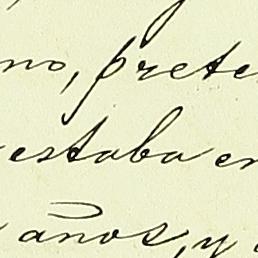 no, prete
estaba en
años, y